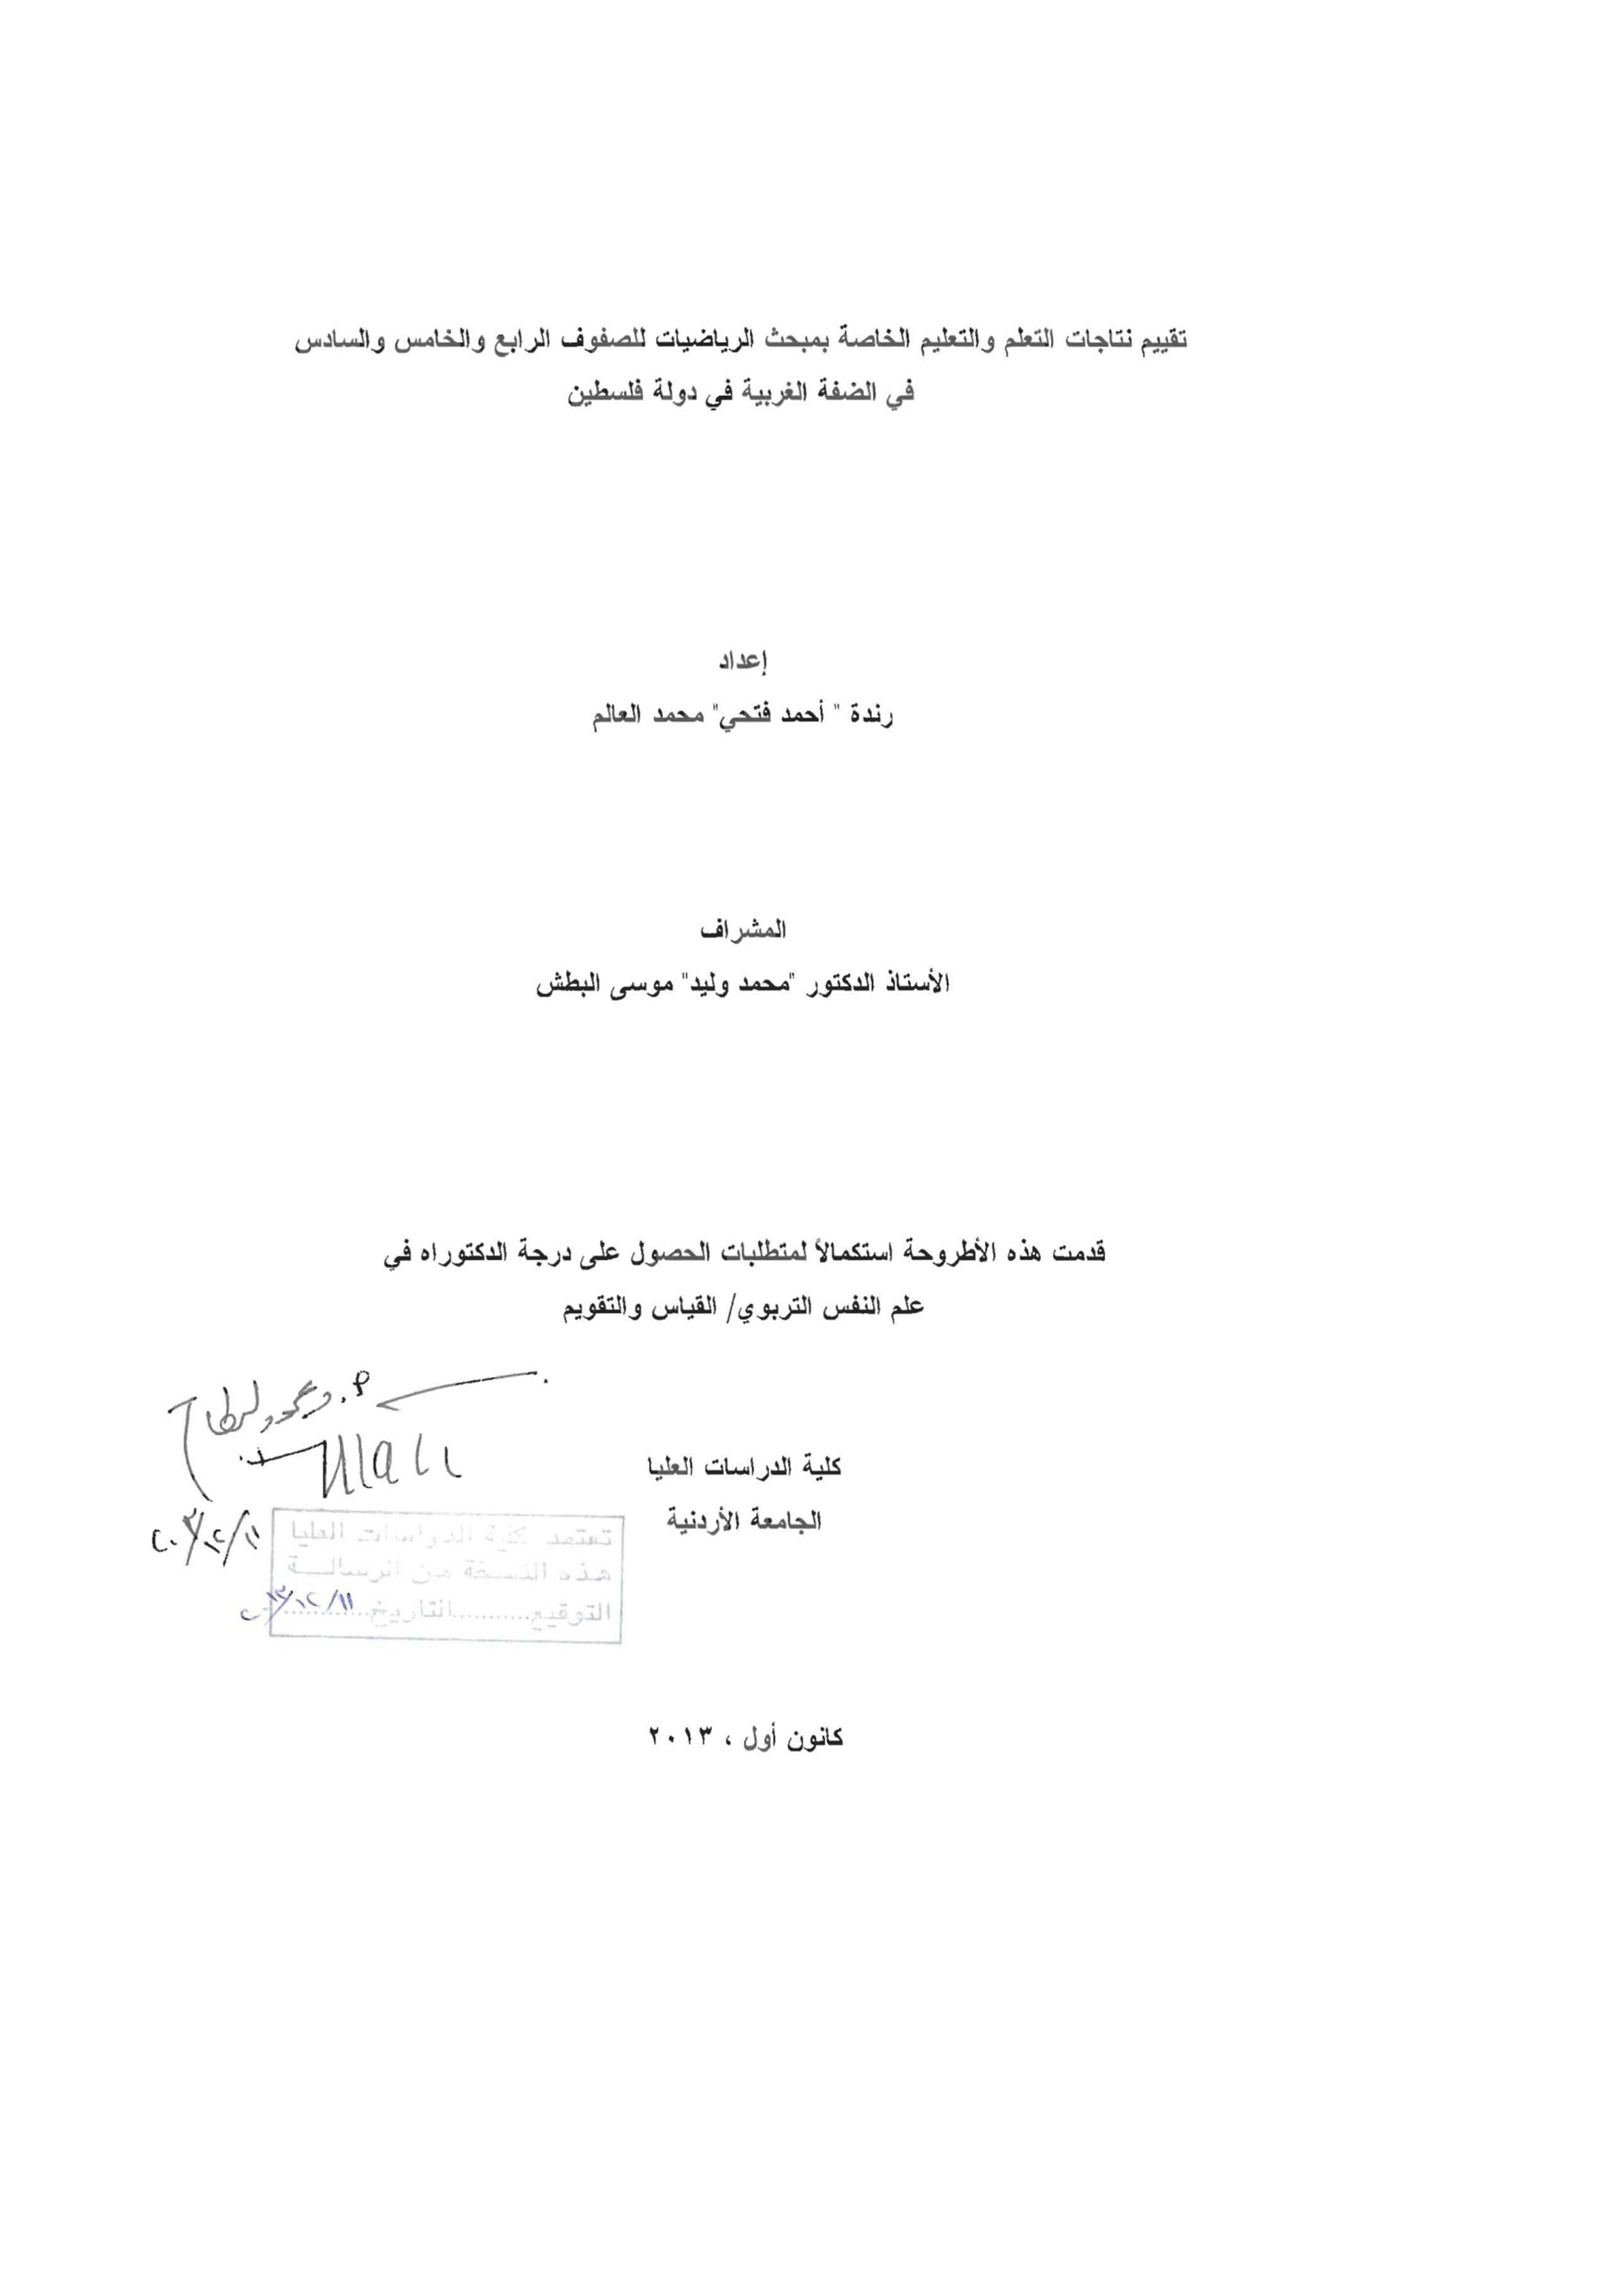 تقييم نتاجات التعلم والتعليم الخاصة بمبحث الرياضيات للصفوف الرابع والخامس والسادس
في الضفة الغربية في دولة فلسطين
إعداد
رندة " أحمد فتحي" محمد العالم
المشراف
الأستاذ الدكتور "محمد وليد" موسى البطش
قدمت هذه الأطروحة استكمالاً لمتطلبات الحصول على درجة الدكتوراه في
علم النفس التربوي/ القياس والتقويم
كلية الدراسات العليا
الجامعة الأردنية
٢٠١٣/١٢/١١
تعتمد كلية الدراسات العليا
هذه النسخة من الرسالـــة
التوقيع...........التاريخ............ ٢٠١٣/١٢/١١
كانون أول ، ٢٠١٣